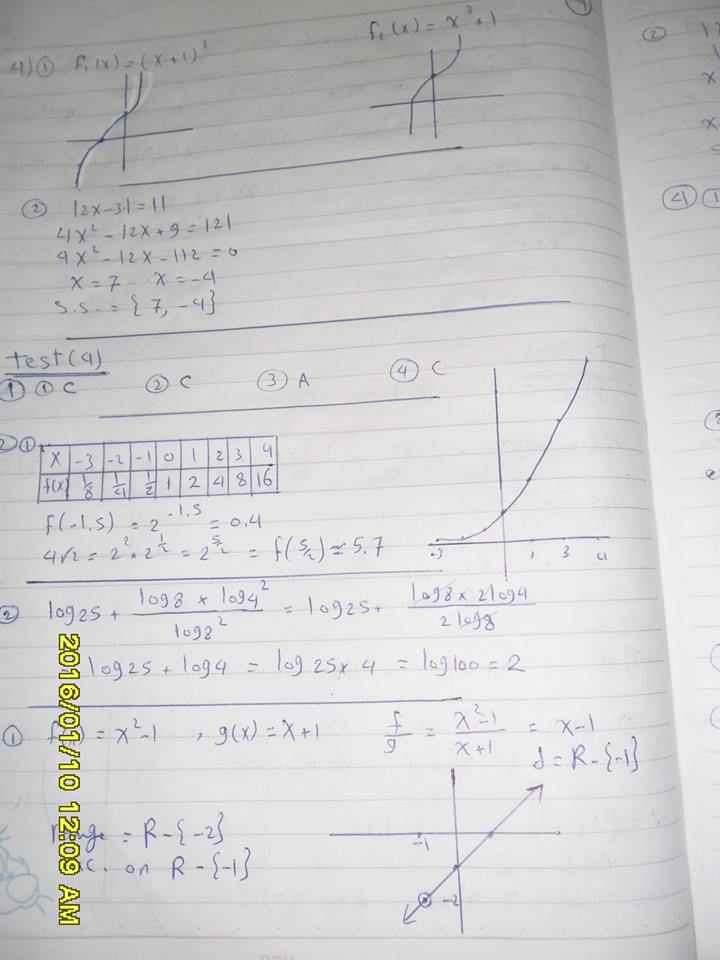 4) ① f₁(x) = (x+1)³ f₂(x) = x³+1
② |2x-3| = 11
4x² - 12x + 9 = 121
4x² - 12x - 112 = 0
x = 7 x = -4
S.S. = {7, -4}
test (4)
① ① C ② C ③ A ④ C
2) ①
x -3 -2 -1 0 1 2 3 4
f(x) 1/8 1/4 1/2 1 2 4 8 16
f(-1.5) = 2^-1.5 = 0.4
4√2 = 2² × 2^1/2 = 2^5/2 = f(5/2) ≃ 5.7
-3 1 3 4
② log25 + (log8 × log4²)/(log8²) = log25 + (log8 × 2log4)/(2log8)
log25 + log4 = log 25×4 = log100 = 2
① f(x) = x²-1 , g(x) = x+1 f/g = (x²-1)/(x+1) = x-1
d = R-{-1}
-1
= R-{-2}
on R-{-1}
-2
2016/01/10 12:09 AM
②
x
x
④ ①